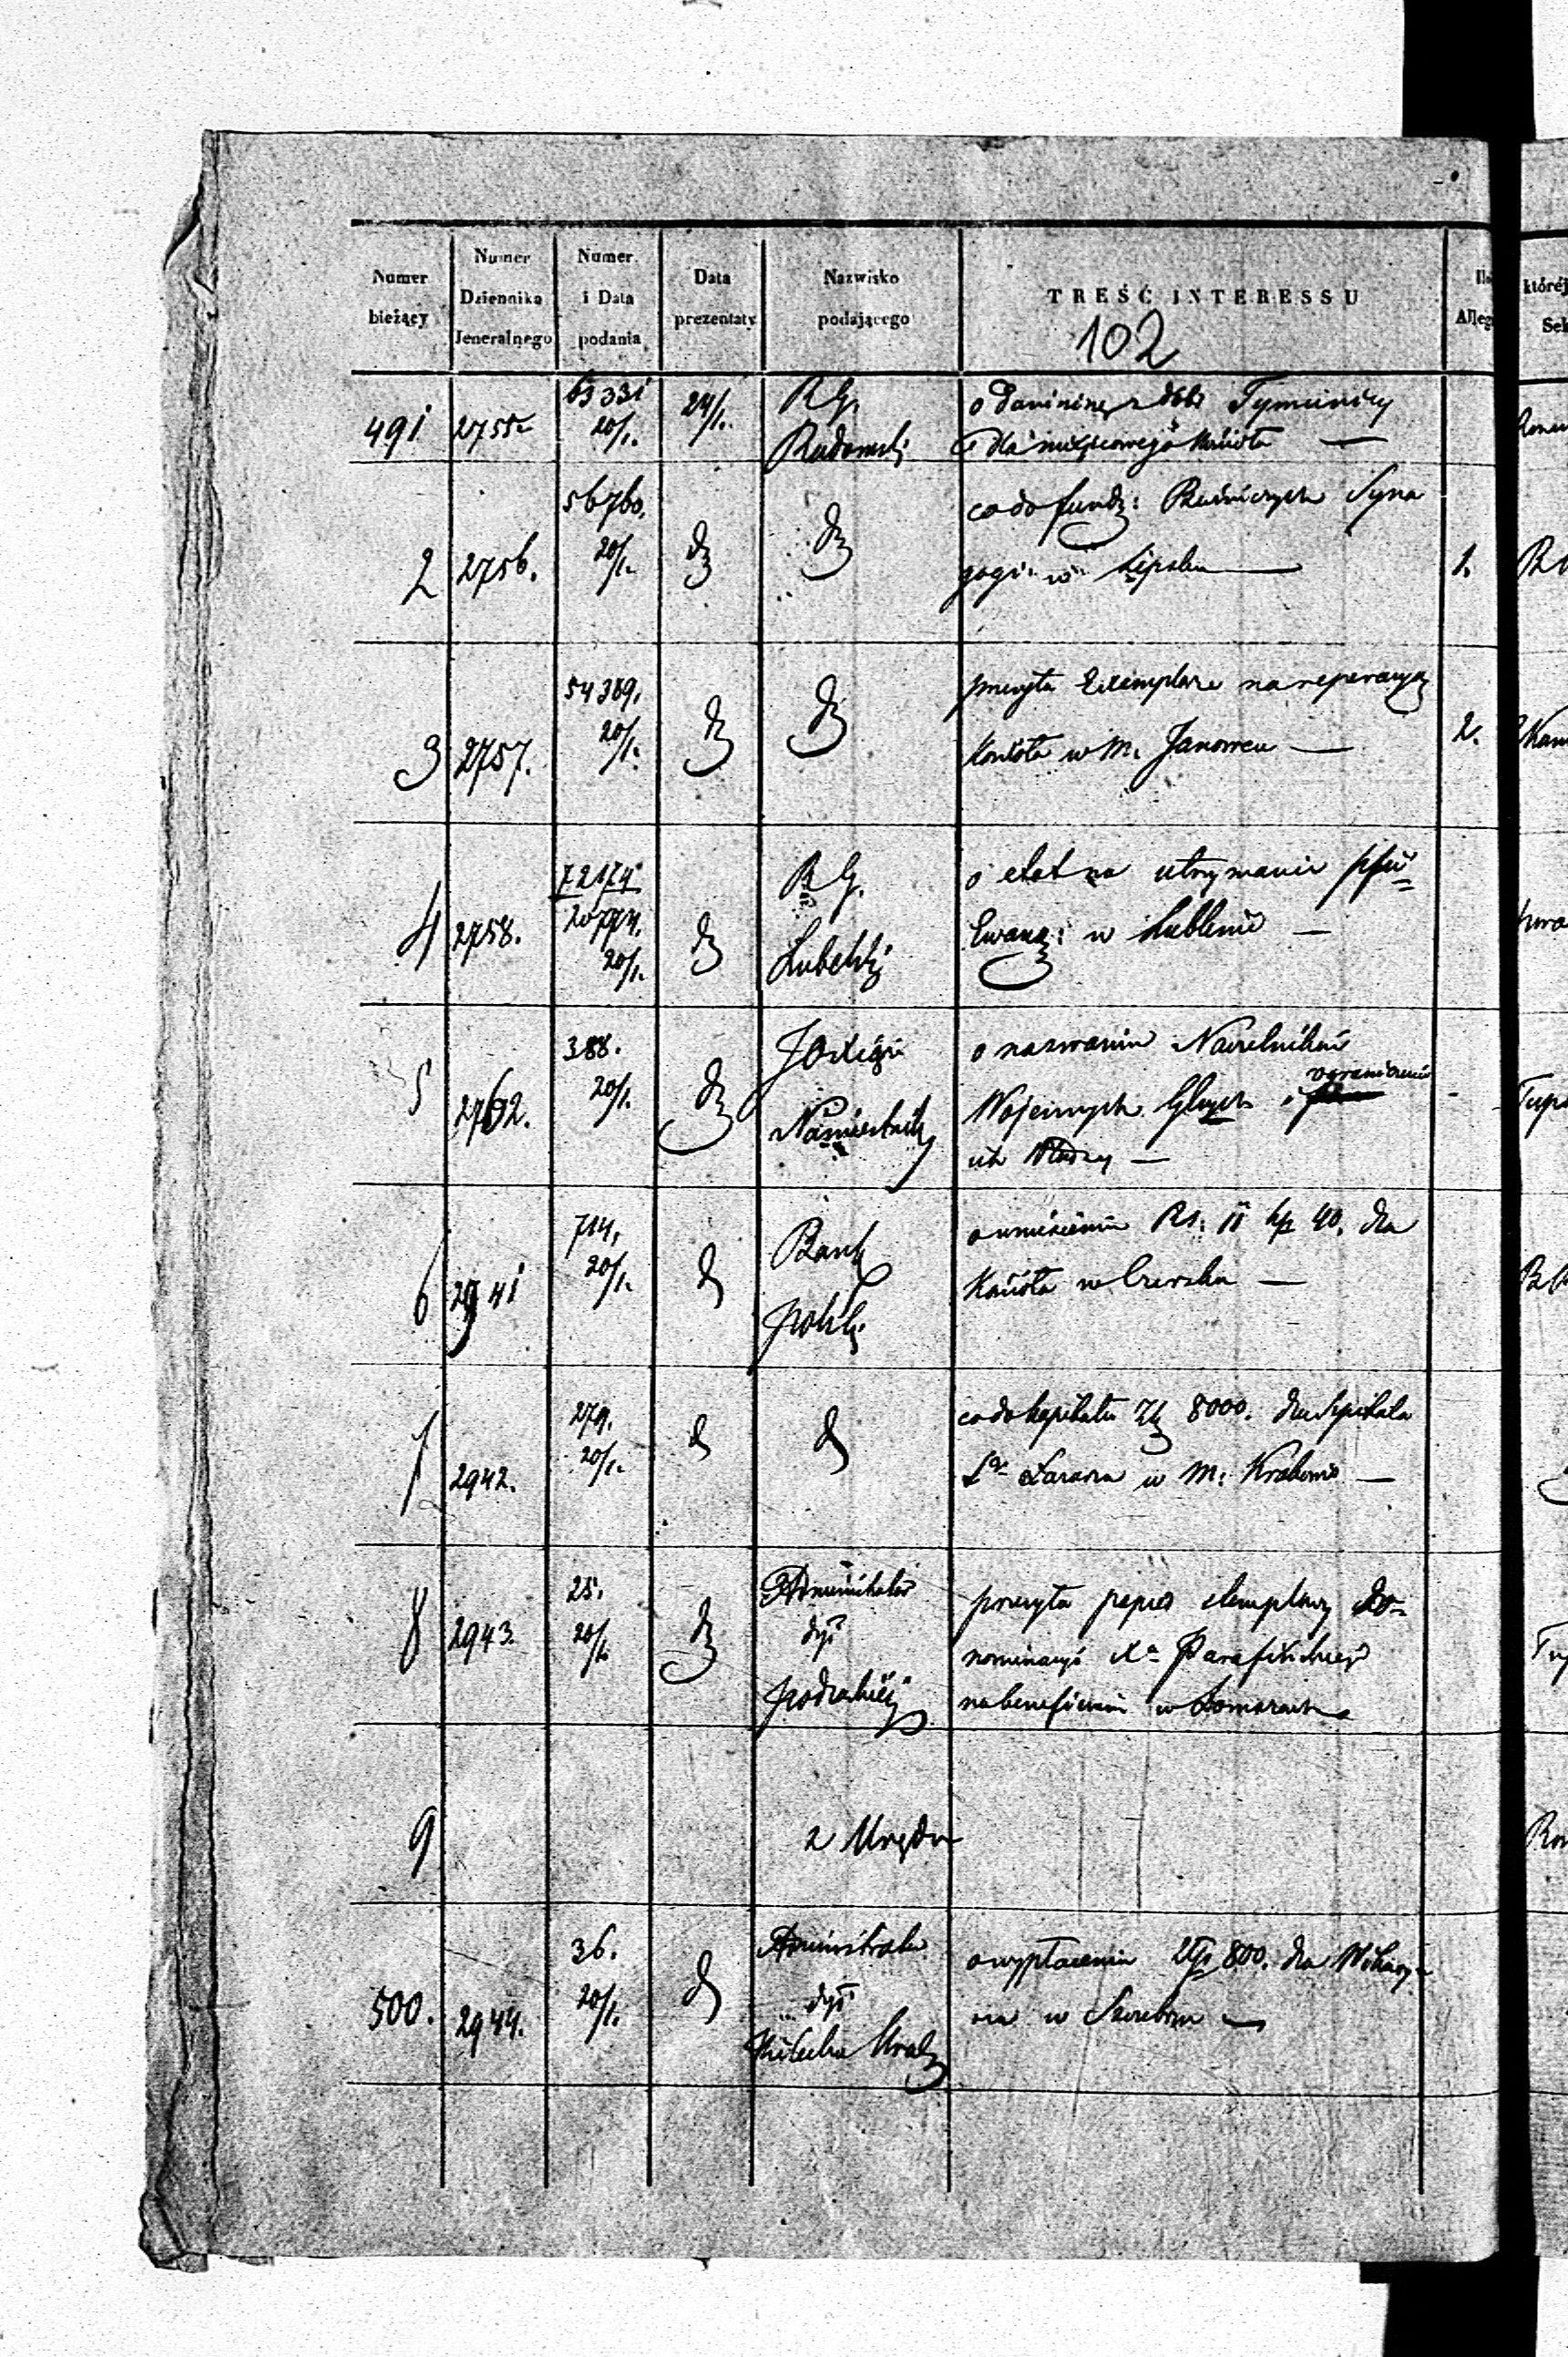 Numer bieżący
Numer Dziennika Jeneralnego
Numer i Data podania
Data prezentaty
Nazwisko podającego
TREŚĆ INTERESSU
102
491 2755 63331 20/1. 24/1. R G. Radomski
o daninę z dóbr Tymienicy
dla miejscowego Kościoła —
2 2756. 56760. 20/1. d d
co do fundz: Bożniczych Syna
gogi w Lipsku — 1.
3 2757. 54389. 20/1. d d
przesyła Exemplarz na reperacyą
Kościoła w M. Janowcu — 2.
4 2758. 72174 20/1. d R G. Lubelski
o etat na utrzymanie
Ewang: w Lublinie —
5 2762. 388. 20/1. d Namiestnik
o nazwaniu Naczelników
Wojennych i ograniczeniu
ich Władzy —
6 2941 714. 20/1. d Bank Polski
o wniesieniu Rs. 11 kp 40. dla
Kościoła w Czersku —
7 2942. 279. 20/1. d d
co do kapitału Zł 8000. dla Szpitala
Sgo Łazarza w M. Krakowie —
8 2943. 25. 20/1. d Administrator dyi Podlaskiej
przesyła papier stemplowy do
nominacyi Xa
na beneficium w Łomazach
9 z Urzędu
500. 2944. 36. 20/1. d Administrator dyi Kielecko Krak
o wypłacenie Złp 800. dla Wikary-
w